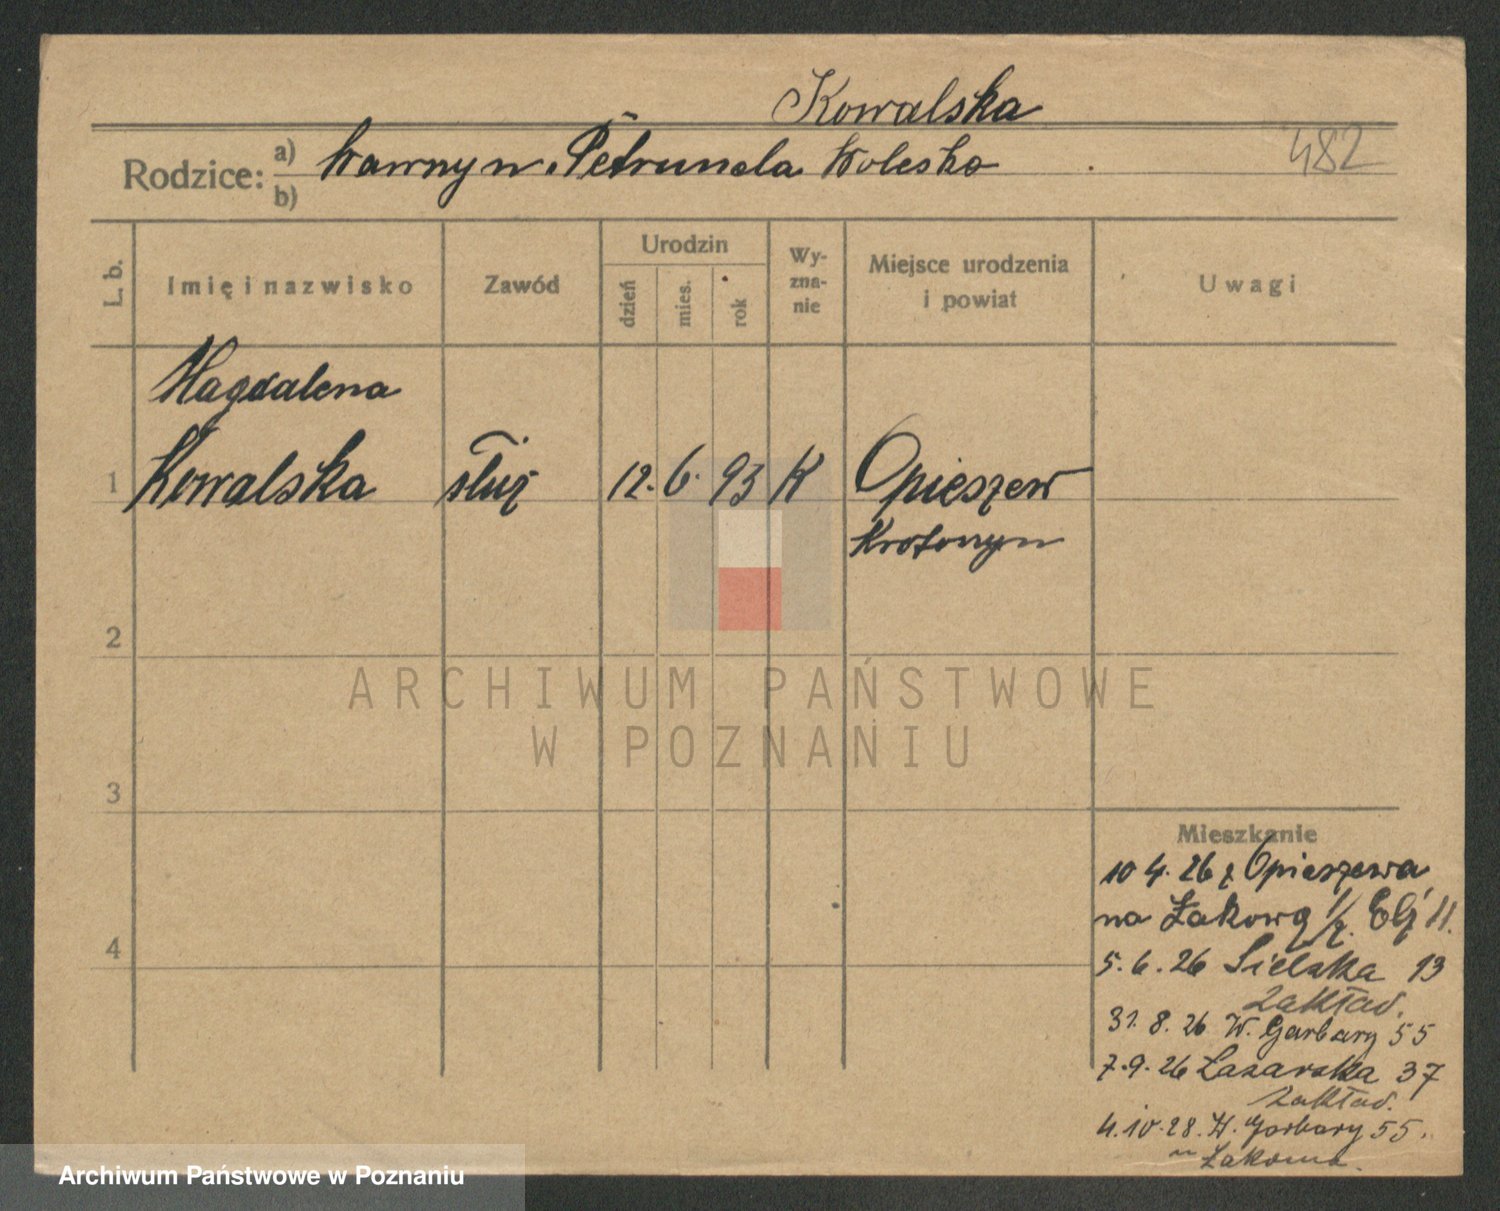 Kowalska
Rodzice: a) Wawrzyn. Petronela Woleska
b)
482
L. b.
Imię i nazwisko
Zawód
Urodzin
dzień
mies.
rok
Wy-
zna-
nie
Miejsce urodzenia
i powiat
Uwagi
Magdalena
1 Kowalska służ 12. 6. 93 K Opieszew
Krotoszyn
2
3
4
ARCHIWUM PAŃSTWOWE
W POZNANIU
Mieszkanie
10 4. 26 z Opieszewa
na Łąkową 11.
5. 6. 26 Sielska 13
zakład.
31. 8. 26 W. Garbary 55
7. 9. 26 Łazarska 37
zakład.
4. 10. 28. W. Garbary 55.
Łąkowa.
Archiwum Państwowe w Poznaniu